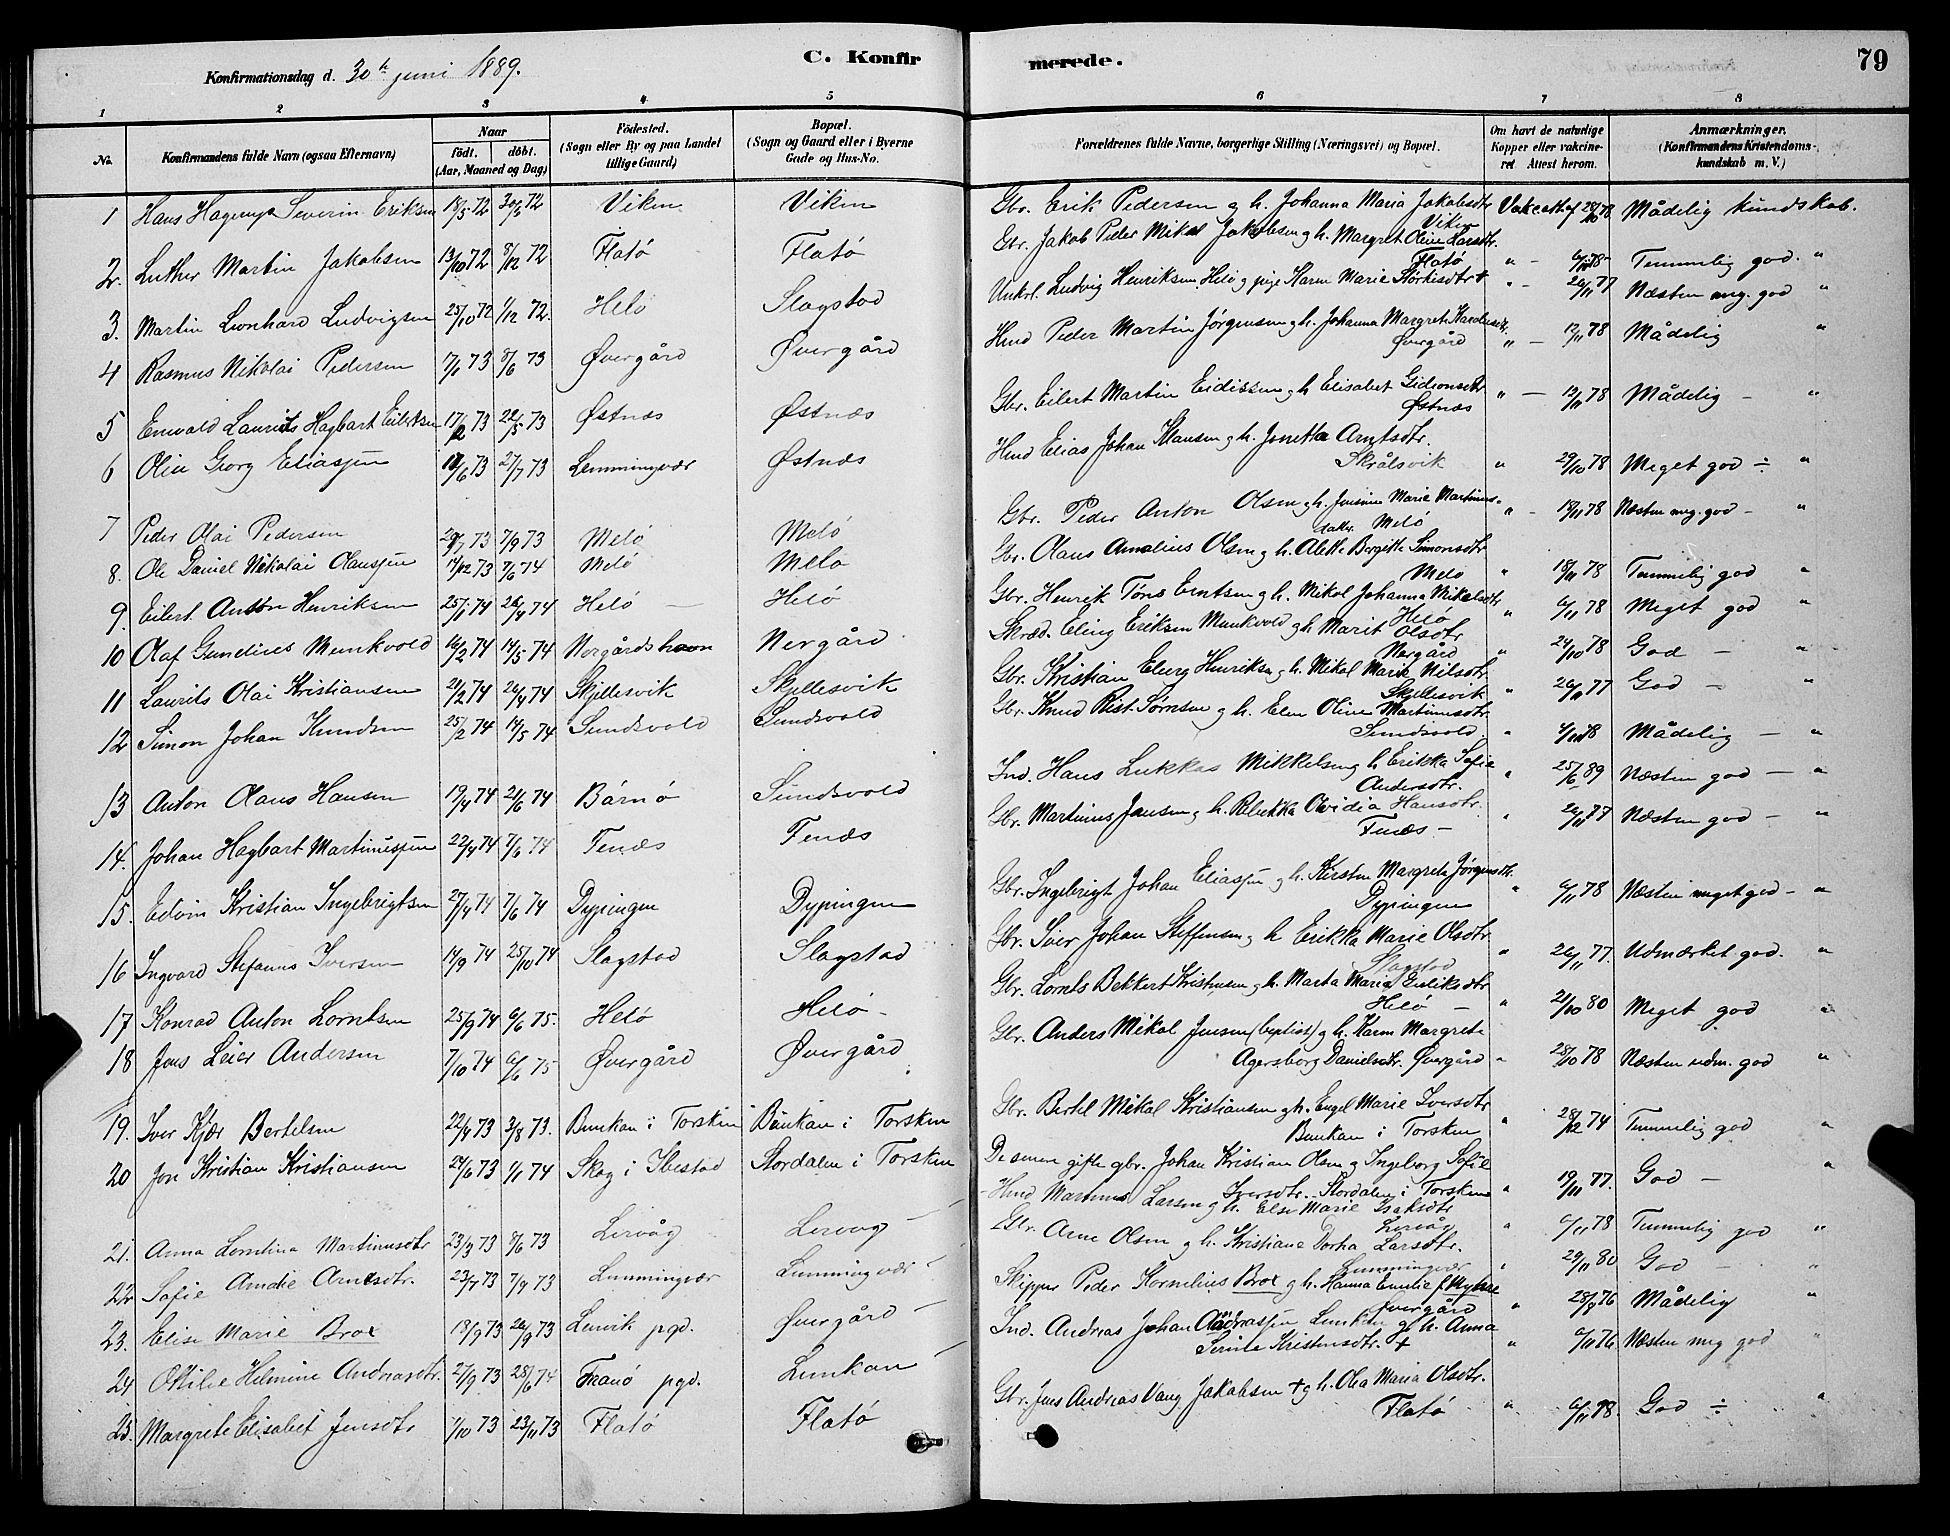 Konfirmationsdag d. 30te juni 1889.
C. Konfirmerede.
79
1 2 3 4 5 6 7 8
No.
Konfirmandens fulde Navn (ogsaa Efternavn)
Naar
födt. döbt.
(Aar, Maaned og Dag)
Födested.
(Sogn eller By og paa Landet
tillige Gaard)
Bopæl.
(Sogn og Gaard eller i Byerne
Gade og Hus-No.
Forældrenes fulde Navne, borgerlige Stilling (Næringsvei) og Bopæl.
Om havt de naturlige
Kopper eller vakcineret
Attest herom.
Anmærkninger.
(Konfirmandens Kristendomskundskab
m. V.)
1 Hans Hagerup Severin Eriksen 18/5 72 30/6 72 Viken Viken Gbr. Erik Pedersen g h. Johanna Maria Jakobsdtr Viken Mådelig kundskab.
2. Luther Martin Jakobsen 13/10 72 8/12 72 Flatö Flatö Gbr. Jakob Peder Mikal Jakobsen g h. Margret Oline Larsdtr. Flatö " - 6/11 78 Temmelig god. "
3. Martin Leonhard Ludvigsen 25/10 72 1/12 72. Helö Slagstad Unkrl. Ludvig Henriksen Helö g pige Karen Marie Størkisdtr + " - 26/11 77 Næsten meg. god "
4 Rasmus Nikolai Pedersen 17/1 73 8/6 73 Øvergård Øvergård Hmd Peder Martin Jørgensen g h. Johanna Margrete Øvergård " - 12/11 78 Mådelig "
5 Enevald Laurits Hagbart Eilertsen 17/2 73 22/5 73 Østnæs Østnæs Gbr. Eilert Martin Eidissen g h Elisabet Gideonsdtr Østnæs " - 12/11 78 Mådelig - "
6 Olai Georg Eliassen 18/6 73 27/7 73 Lemmingvær Østnæs Hmd Elias Johan Klausen g h. Jonetta Arntsdtr. Skrålsvik " 29/10 78 Meget god ÷ "
7 Peder Olai Pedersen 29/7 73 7/9 73 Melö Melö Gbr. Peder Anton Olsen g h. Jensine Marie Martinusdatter Melö " - 18/11 78 Næsten meg. god - "
8. Ole Daniel Nikolai Olaussen 14/12 73 7/6 74 Melö Melö Gbr. Olaus Amalius Olsen g h. Alette Bergitte Simonsdtr Melö " 18/11 78 Temmelig god "
9. Eilert Anton Henriksen 25/1 74 26/4 74 Helö - Helö Gbr. Henrik Töns Erntsen g h. Mikol Johanna Mikalsdtr Helö " 6/11 78 Meget god "
10 Olaf Gundius Munkvold 16/2 74 14/5 74 Nergårdshavn Nergård Skræd. Eling Eriksen Munkvold g h. Marit Olsdtr Nergård " 24/10 78 God - "
11 Laurits Olai Kristiansen 21/2 74 26/4 74 Skjellesvik Skjellesvik Gbr. Kristian Elerg Henriksen g h. Mikal Marie Nilsdtr Skjellesvik " 26/11 77 God - "
12 Simon Johan Knudsen 25/2 74 14/5 74 Sundsvold Sundsvold Gbr. Knud Rist. Sørnsen g h. Elen Oline Martinusdtr. Sundsvold. " Mådelig - "
13 Anton Olaus Hansen 19/4 74 21/6 74 Bårnö Sundsvold Ind. Hans Lukkas Mikkelsen g h Erikka Sofie Andersdtr. " 25/6 89 Næsten god - "
14. Johan Hagbart Martinussen 22/4 74 7/6 74 Fenæs Fenæs Gbr. Martinus Jensen g h. Rebekka Olvidia Hansdtr. Fenæs - " 26/11 77 Næsten god - "
15. Edvin Kristian Ingebrigtsen 27/4 74 7/6 74 Dypingen Dypingen Gbr. Ingebrigt Johan Eliassen g h. Kirsten Margrete Jørgensdtr. Dypingen " 6/11 78 Næsten meget god - "
16 Ingvard Stefanus Iversen 14/9 74 25/10 74 Slagstad Slagstad Gbr. Iver Johan Steffensen g h Erikka Marie Olsdtr Slagstad " 26/11 77. Udmærket god. "
17 Konrad Anton Lorntsen 25/9 74 6/6 75. Helö Helö - Gbr. Lornts Bekkert Kristensen g h. Marta Maria Helö - " 21/10 80 Meget god "
18 Jens Leier Andersen 7/10 74 6/6 75 Øvergård Øvergård Gbr. Anders Mikal Jensen (baptist) g h. Karen Margrete Agersborg Danielsdtr. Øvergård " 28/10 78 Næsten udm. god "
19. Iver Kjær Bertelsen 22/4 73 3/8 73. Bunkan i Torsken Bunkan i Torsken Gbr. Bertel Mikal Kristiansen g h. Engel Marie Iversdtr Bunkan i Torsken " 28/12 74 Temmelig god "
20 Jon Kristian Kristiansen 24/6 73 1/1 74 Skog i Ibestad Stordalen i Torsken De senere gifte gbr. Johan Kristian Olsen g Ingeborg Sofie Iversdtr. Stordalen i Torsken " 19/11 77. God - "
21. Anna Lorntina Martinusdtr 23/3 73 8/6 73 Lervåg Lervåg - Hmd Martinus Larsen g h. Else Marie Isaksdtr Lervåg " 6/11 78 Temmelig god "
22 Sofie Amalie Arnesdtr. 23/7 73 7/9 73 Lemmingvær Lemmingvær - Gbr. Arne Olsen g h. Kristiane Dortha Larsdtr. Lemmingvær " 29/11 80 God - "
23. Elise Marie Brox 18/9 73 26/9 73 Lenvik pgd. Øvergård - Skipper Peder Kornelius Brox g h. Hanna Emilie f. Myhre Øvergård " 28/9 76 Mådelig "
24 Ottilie Helmine Andreasdtr. 27/9 73 28/6 74 Tranö pgd. Lemkan - Ind. Andreas Johan Andreassen g h. Anna Serine Kristensdtr. + " 6/11 76 Næsten meg god "
25. Margrete Elisabet Jensdtr 1/10 73 23/11 73 Flatö Flatö Gbr. Jens Andreas Vang Jakobsen + g h. Olea Maria Olsdtr. Flatö " 6/11 78. God ÷ "